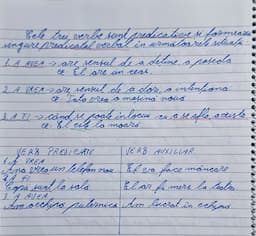 Cele trei verbe sunt predicative și formează
singure predicatul verbal în următoarele situații
1. A AVEA → are sensul de a deține a poseda
ex: El are un ceas.
2. A VREA → are sensul de a dori, a intenționa
ex: Tata vrea o mașină nouă
3. A FI → când se poate înlocui cu a se afla, a exista
ex: El este la modă
VERB PREDICATIV VERB AUXILIAR
1. A VREA
Ana vrea un telefon nou El va face mâncare
2. A FI
Copiii sunt la sală El ar fi mers la
3. A AVEA
Am echipă puternică Am lucrat în echipă